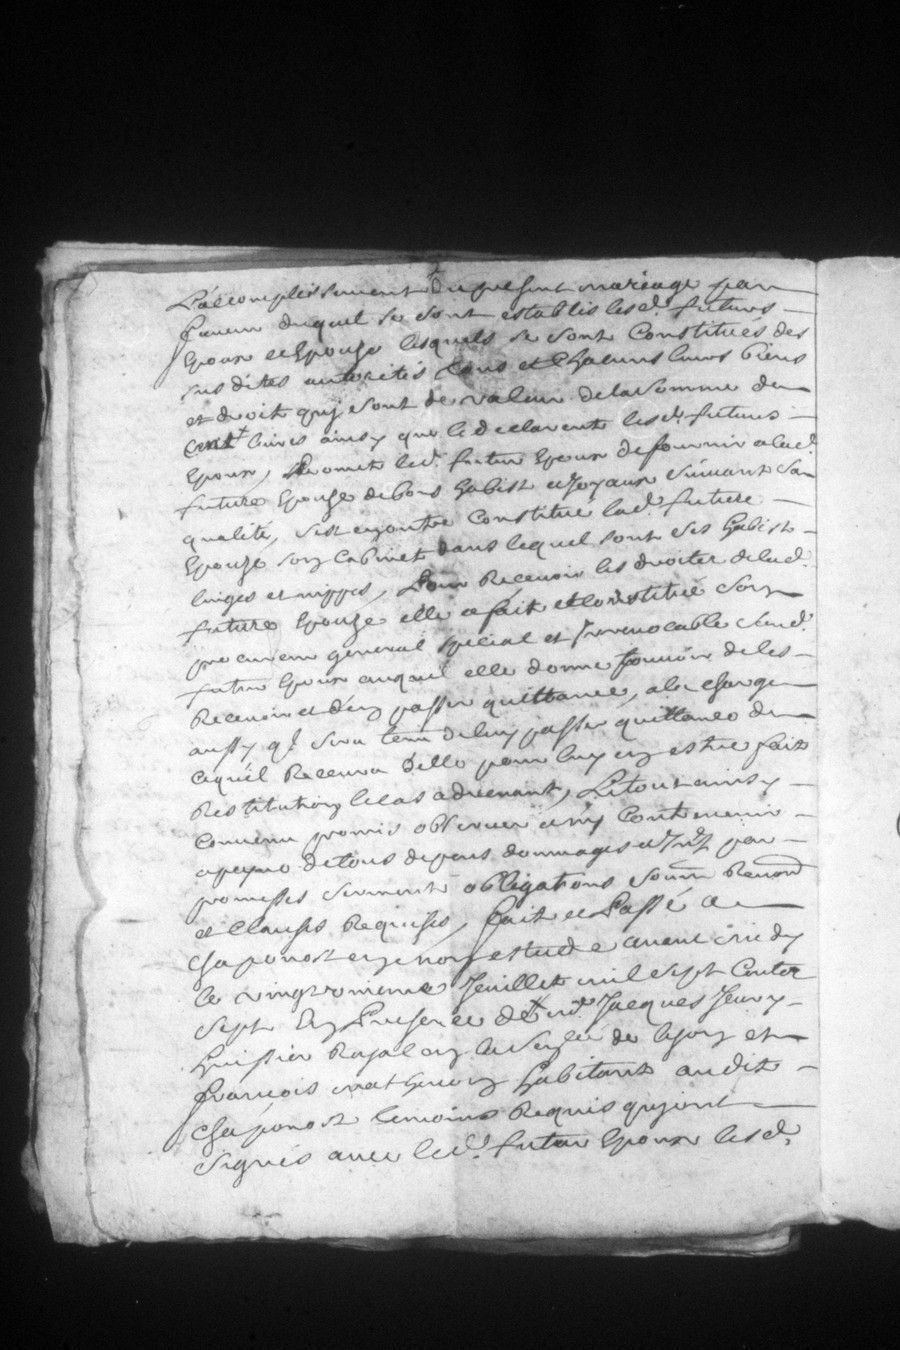 L'accomplissement du present mariage par
faveur duquel se sont establis lesd. futurs
Epoux et Epouze lesquels se sont Constitués des
sus dites autorités tous et Chacuns leurs biens
et droit quj sont de valeur de la somme de
cent livres ainsy que le declarent lesd. futurs
Epoux, Promet led. futur Epoux de fournir a lad.
future Epouze de bons habist et Joyaux suivant sa
qualité, s'est en outre Constitué lad. future
Epouze son Cabinet dans lequel sont ses habist
linges et nippes, Pour Recevoir les droiter de lad.
future Epouze elle a fait et Constitué son
procureur general special et Irrevocable led.
futur Epoux auquel elle donne pouvoir de les
Recevoir et d'en passer quittance, a la charge
aussy ql sera tenu de luy passer quittance de
ce qu'il Recevra d'elle pour luy en estre fait
Restitution le cas advenant, Le tout ainsy
Convenu promis observer a ny Contrevenir
a peyne de tous depens dommages et Jntz par
promesses serment obligations soum Renond
et Clauses Requises, fait et Passé a
Chaponost en mon estude avant midy
le vingt Juillet mil sept Centz
sept En Presence de Jacques
huissier Royal en la de Lyon et
francois habitant audit
Chaponost temoins Requis quj ont
signés avec led. futur Epoux lesd.